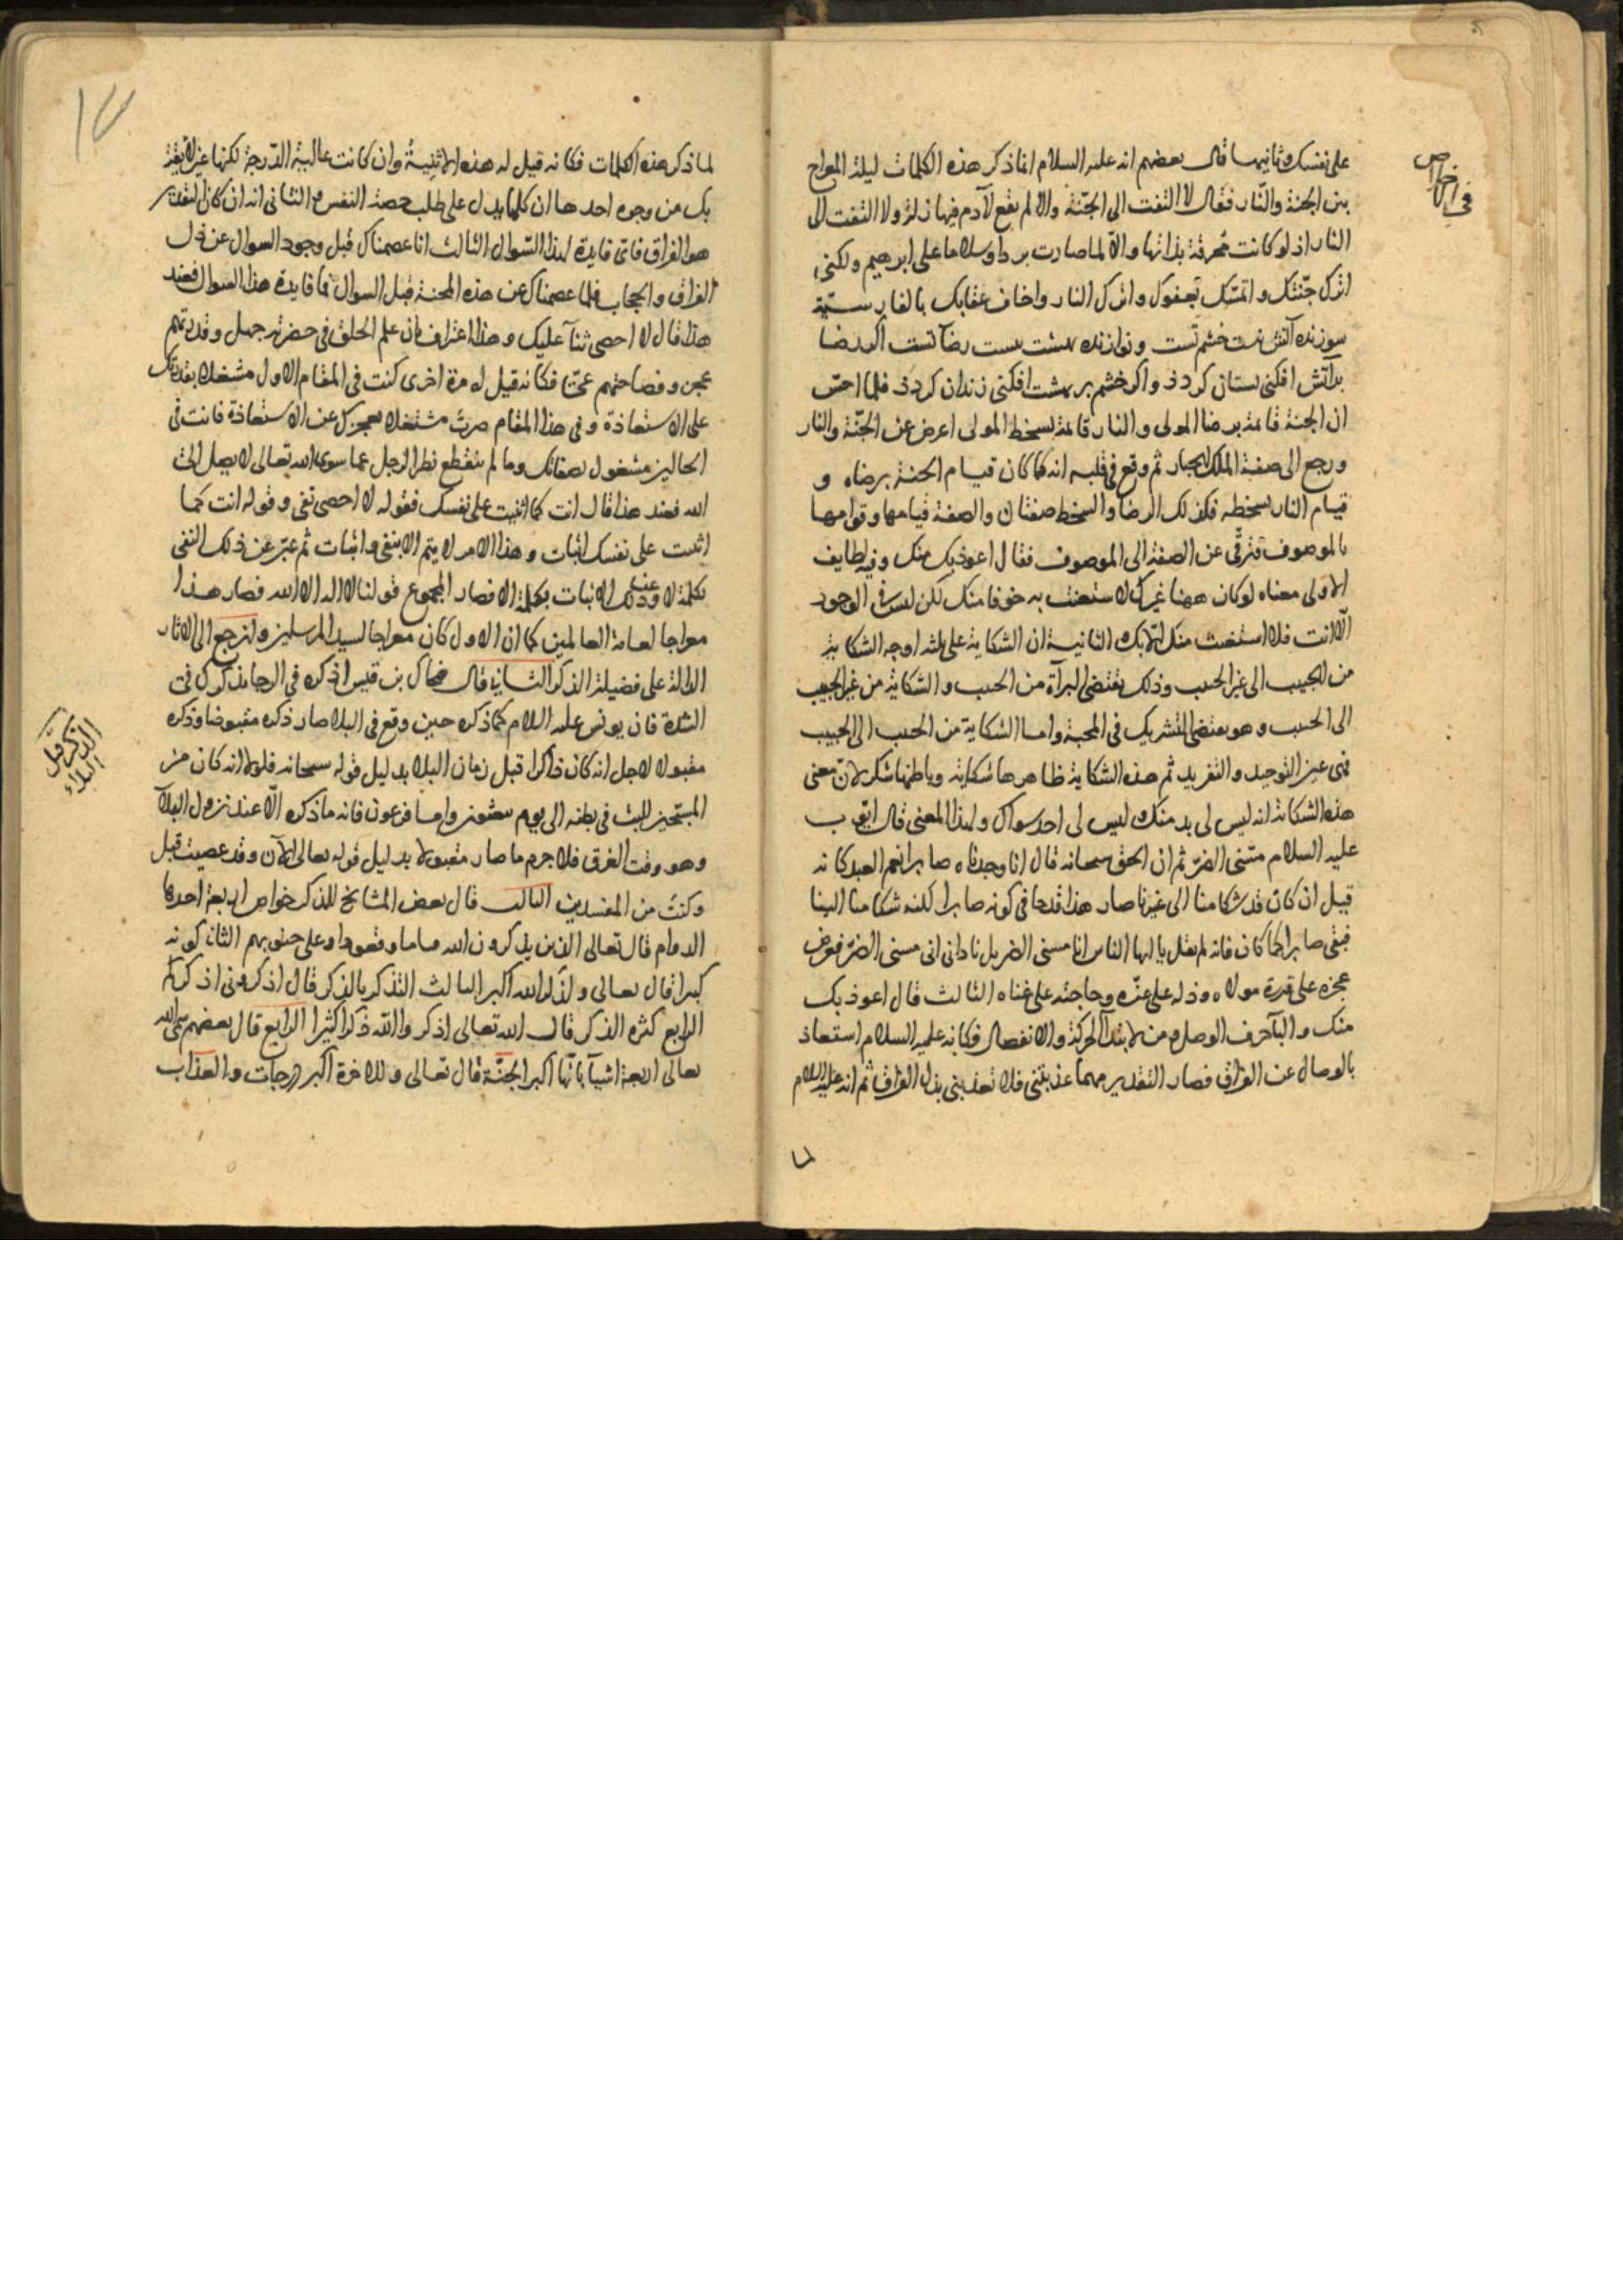 في الاخلاص
على نفسك وثانيها قال بعضهم انه عليه السلام انما ذكر هذه الكلمات ليلة المعراج
بين الجنة والنار فقال لا التفت الى الجنة والا لم يقع لآدم فيها زلة ولا التفت الى
النار اذ لو كانت محرقة بذاتها والا لما صارت بردا وسلاما على ابرهيم ولكني
اترك جنتك واتمسك بعفوك واترك النار واخاف عقابك بالفارسية
سوزنده آتش نيست خشم تست ونوازنده بهشت نيست رضا تست اگر رضا
بر آتش افكنى بستان كردد واكر خشم بر بهشت افكنى زندان كردد فلما احس
ان الجنة قائمة برضا المولى والنار قائمة بسخط المولى اعرض عن الجنة والنار
ورجع الى صفة الملك الجبار ثم وقع في قلبه انه كما كان قيام الجنة برضاه و
قيام النار بسخطه فكذلك الرضا والسخط صفتان والصفة قيامها وقوامها
بالموصوف فترقى عن الصفة الى الموصوف فقال اعوذ بك منك وفيه لطايف
الاولى معناه لو كان ههنا غيرك لاستعنت به خوفا منك لكن ليس في الوجود
الا انت فلا استغيث منك الا بك الثانية ان الشكاية على ثلثه اوجه الشكاية
من الحبيب الى غير الحبيب وذلك يقتضى البرآة من الحبيب والشكاية من غير الحبيب
الى الحبيب وهو يقتضى التشريك في المحبة واما الشكاية من الحبيب الى الحبيب
فهي عين التوحيد والتفريد ثم هذه الشكاية ظاهرها شكاية وباطنها شكر لان معنى
هذه الشكاية انه ليس لى بد منك وليس لى احد سواك ولهذا المعنى قال ايوب
عليه السلام مسني الضر ثم ان الحق سبحانه قال انا وجدناه صابرا نعم العبد كانه
قيل ان كان قد شكا منا الى غيرنا صار هذا قدحا في كونه صابرا لكنه شكا منا الينا
فبقى صابرا كما كان فانه لم يقل يا ايها الناس انا مسنى الضر بل نادانى انى مسنى الضر فعرض
عجزه على قدرة مولاه وذله على عزه وحاجته على غناه الثالث قال اعوذ بك
منك والبآ حرف الوصل ومن لابتدآ الحركة والانفصال فكانه عليه السلام استعاذ
بالوصال عن الفراق فصار التقدير مهما عذبتنى فلا تعذبنى بذل الفراق ثم انه عليه السلام
لما
لما ذكر هذه الكلمات فكانه قيل له هذه الاثنية وان كانت عالية الدرجة لكنها غير لايقة
بك من وجوه احدها ان كلها يدل على طلب حصة النفس والثانى انه ان كان لتقدير
هو الفراق فاى فايدة لهذا السوال الثالث انا عصمناك قبل وجود السوال عن ذل
الفراق والحجاب فلما عصمناك عن هذه المحنة قبل السوال فما فايدة هذا السوال فعند
هذا قال لا احصى ثنآ عليك وهذا اعتراف بان علم الخلق في حضرته جهل وقدرتهم
عجز وفصاحتهم عى فكانه قيل له مرة اخرى كنت في المقام الاول مشتغلا بقدرتك
على الاستعاذة وفي هذا المقام صرت مشتغلا بعجزك عن الاستعاذة فانت في
الحالين مشغول بصفاتك وما لم ينقطع نظر الرجل عما سوى الله تعالى لا يصل الى
الله فعند هذا قال انت كما اثنيت على نفسك فقوله لا احصى نفى وقوله انت كما
اثنيت على نفسك اثبات وهذا الامر لا يتم الا بنفى واثبات ثم عبر عن ذلك النفى
بكلمة لا وعن ذلك الاثبات بكلمة الا فصار المجموع قولنا لا اله الا الله فصار هذا
معراجا لعامة العالمين كما ان الاول كان معراجا لسيد المرسلين ولنرجع الى الاثار
الدالة على فضيلة الذكر الثانى قال ضحاك بن قيس اذكره في الرخا يذكرك في
الشدة فان يونس عليه السلام كما ذكره حين وقع في البلا صار ذكره مقبوضا وذكره
مقبولا لاجل انه كان ذاكرا قبل زمان البلا بدليل قوله سبحانه فلولا انه كان من
المسبحين للبث في بطنه الى يوم يبعثون واما فرعون فانه ما ذكره الا عند نزول البلآ
وهو وقت الغرق فلا جرم ما صار مقبولا بدليل قوله تعالى الآن وقد عصيت قبل
وكنت من المفسدين الثالث قال بعض المشايخ للذكر خواص اربعة احدها
الدوام قال تعالى الذين يذكرون الله قياما وقعودا وعلى جنوبهم الثانى كونه
كبيرا قال تعالى ولذكر الله اكبر الثالث التذكر بالذكر قال اذكرونى اذكركم
الرابع كثرة الذكر قال الله تعالى اذكروا الله ذكرا كثيرا الرابع قال بعضهم سمى الله
تعالى اربعة اشيآ بانها اكبر الجنة قال تعالى وللاخرة اكبر درجات والعذاب
الذكر قبل
البلاء